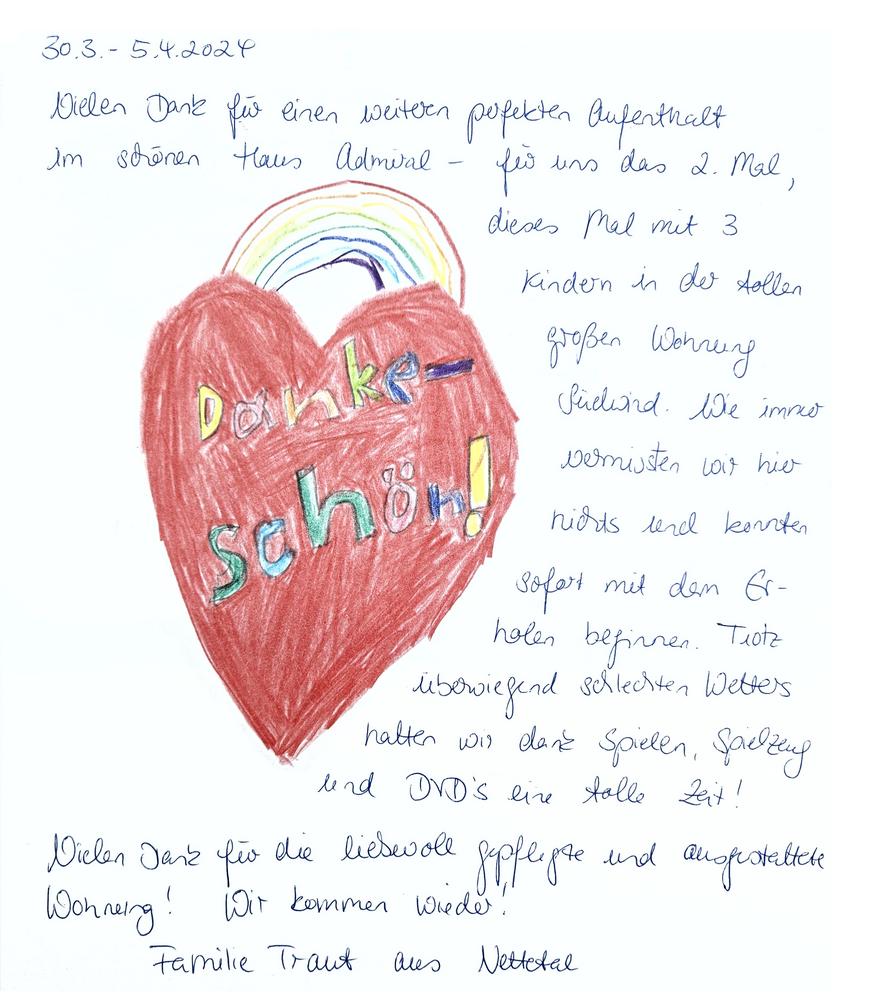 30.3.- 5.4.2024
Vielen Dank für einen weiteren perfekten Aufenthalt
im schönen Haus Admiral - für uns das 2. Mal,
dieses Mal mit 3
Kindern in der tollen
großen Wohnung
Südwind. Wie immer
vermissten wir hier
nichts und konnten
sofort mit dem Er-
holen beginnen. Trotz
überwiegend schlechten Wetters
hatten wir dank Spielen, Spielzeug
und DVD's eine tolle Zeit!
Danke-
schön!
Vielen Dank für die liebevoll gepflegte und ausgestaltete
Wohnung! Wir kommen wieder!
Familie Traut aus Nettetal